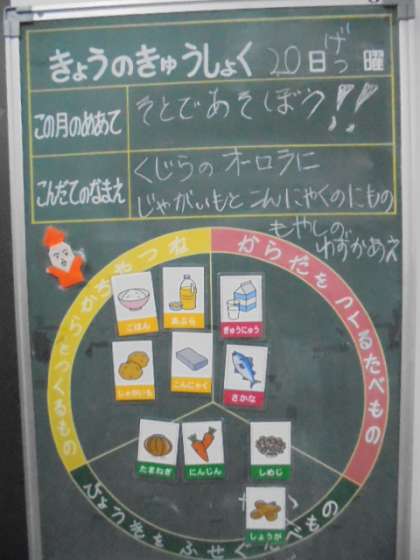 きょうのきゅうしょく 20日げつ曜
この月のめあて
そとであそぼう!!
こんだてのなまえ
くじらのオーロラに
じゃがいもとこんにゃくのにもの
もやしの
わずかあえ
ちからやねつ
らをつくるもの
からだをつくるたべもの
ごはん
あぶら
ぎゅうにゅう
じゃがいも
こんにゃく
さかな
たまねぎ
にんじん
しめじ
しょうが
びょうきをふせぐたべもの